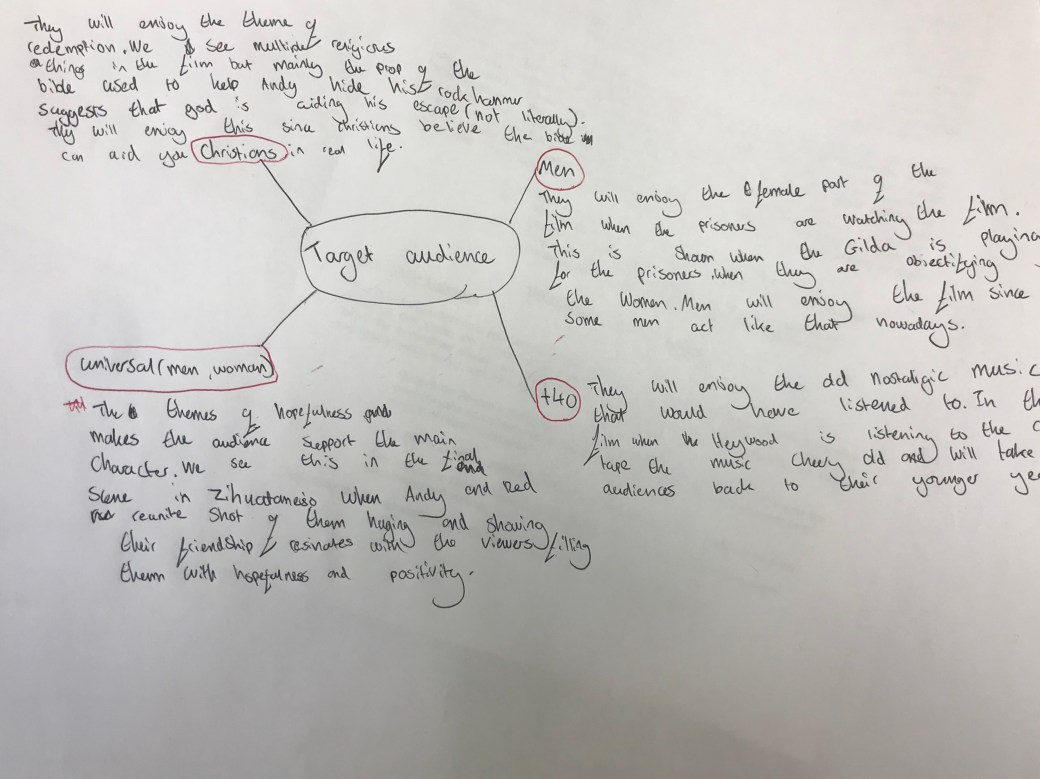 They will enjoy the theme of
redemption. We see multiple religious
things in the film but mainly the prop of the
bible used to help Andy hide his rock hammer
suggests that god is aiding his escape (not literally).
They will enjoy this since christians believe the bible
can aid you in real life.
Christians
Men
They will enjoy the female part of the
film when the prisoners are watching the film.
This is shown when the Gilda is playing
for the prisoners, when they are objectifying
the Women. Men will enjoy the film since
some men act like that nowadays.
Target audience
universal (men, woman)
The themes of hopefulness
makes the audience support the main
character. We see this in the final
Scene in Zihuatanejo when Andy and Red
reunite shot of them huging and showing
their friendship resinates with the viewers filling
them with hopefulness and positivity.
+40
They will enjoy the old nostalgic music
that would have listened to. In
film when the Heywood is listening to the
tape the music cheery old and will take
audiences back to their younger